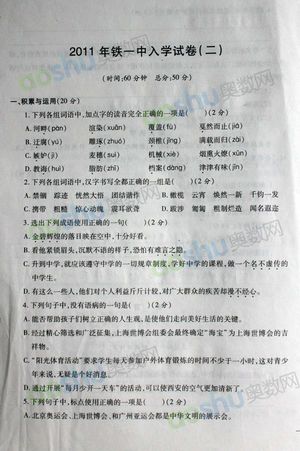 2011年铁一中入学试卷(二)
(时间:60分钟 总分:50分)
一、积累与运用(20分)
1. 下列各组词语中,加点字的读音完全正确的一项是( )(2分)
A. 河畔(pàn) 渲染(xuàn) 覆盖(fù) 戛然而止(jiá)
B. 迂腐(yū) 雕琢(zhuó) 颈椎(jǐng) 满载而归(zài)
C. 嫉妒(jí) 麦穗(suì) 机械(xiè) 烟熏火燎(xūn)
D. 教诲(huì) 脂肪(zhī) 档案(dàng) 津津有味(jīn)
2. 下列各组词语中,汉字书写全都正确的一组是( )(2分)
A. 禁锢 踪迹 恍然大悟 团结谐作 B. 橄榄 云霄 焕然一新 千钧一发
C. 携带 粗糙 惊心动魄 震耳欲聋 D. 跟 匍匐 粗制烂造 闻名遐迩
3. 选出下列成语使用正确的一句( )(2分)
A. 金碧辉煌的落日映在空中,十分好看。
B. 看他紧锁眉头,沉默不语的样子,恐怕有难言之隐。
C. 升到中学,就应该遵守中学的一切规章制度,学好中学的课程,做一个名不虚传的中学生。
D. 有这么一些人,他们对个人利益斤斤计较,对广大群众的疾苦却漫不经心。
4. 下列句子中,没有语病的一句是( )(2分)
A. 能否帮助孩子们树立正确的人生观,是使他们走向美好生活的关键。
B. 经过精心筛选和广泛征集,上海世博会组委会最终确定“海宝”为上海世博会的吉祥物。
C. “阳光体育活动”要求学生每天参加户外体育锻炼的时间不少于一小时,这对青少年来说,无疑是个好消息。
D. 通过开展“每月少开一天车”的活动,可以使西安的空气更加清新了。
5. 下列句子中,标点使用正确的一项是( )(2分)
A. 北京奥运会、上海世博会、和广州亚运会都是中华文明的展示会。